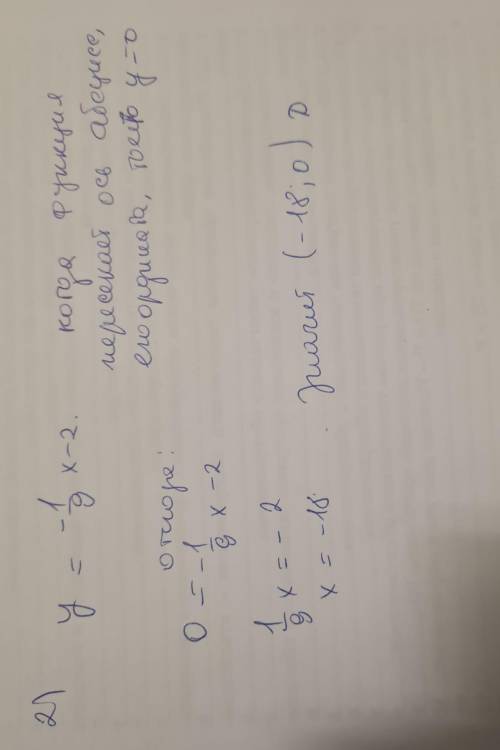 2) y = -1/9 x - 2. когда функция
пересекает ось абсцисс,
его ордината, тоесть y=0
отсюда:
0 = -1/9 x - 2
1/9 x = - 2
x = -18. Значит (-18; 0) D